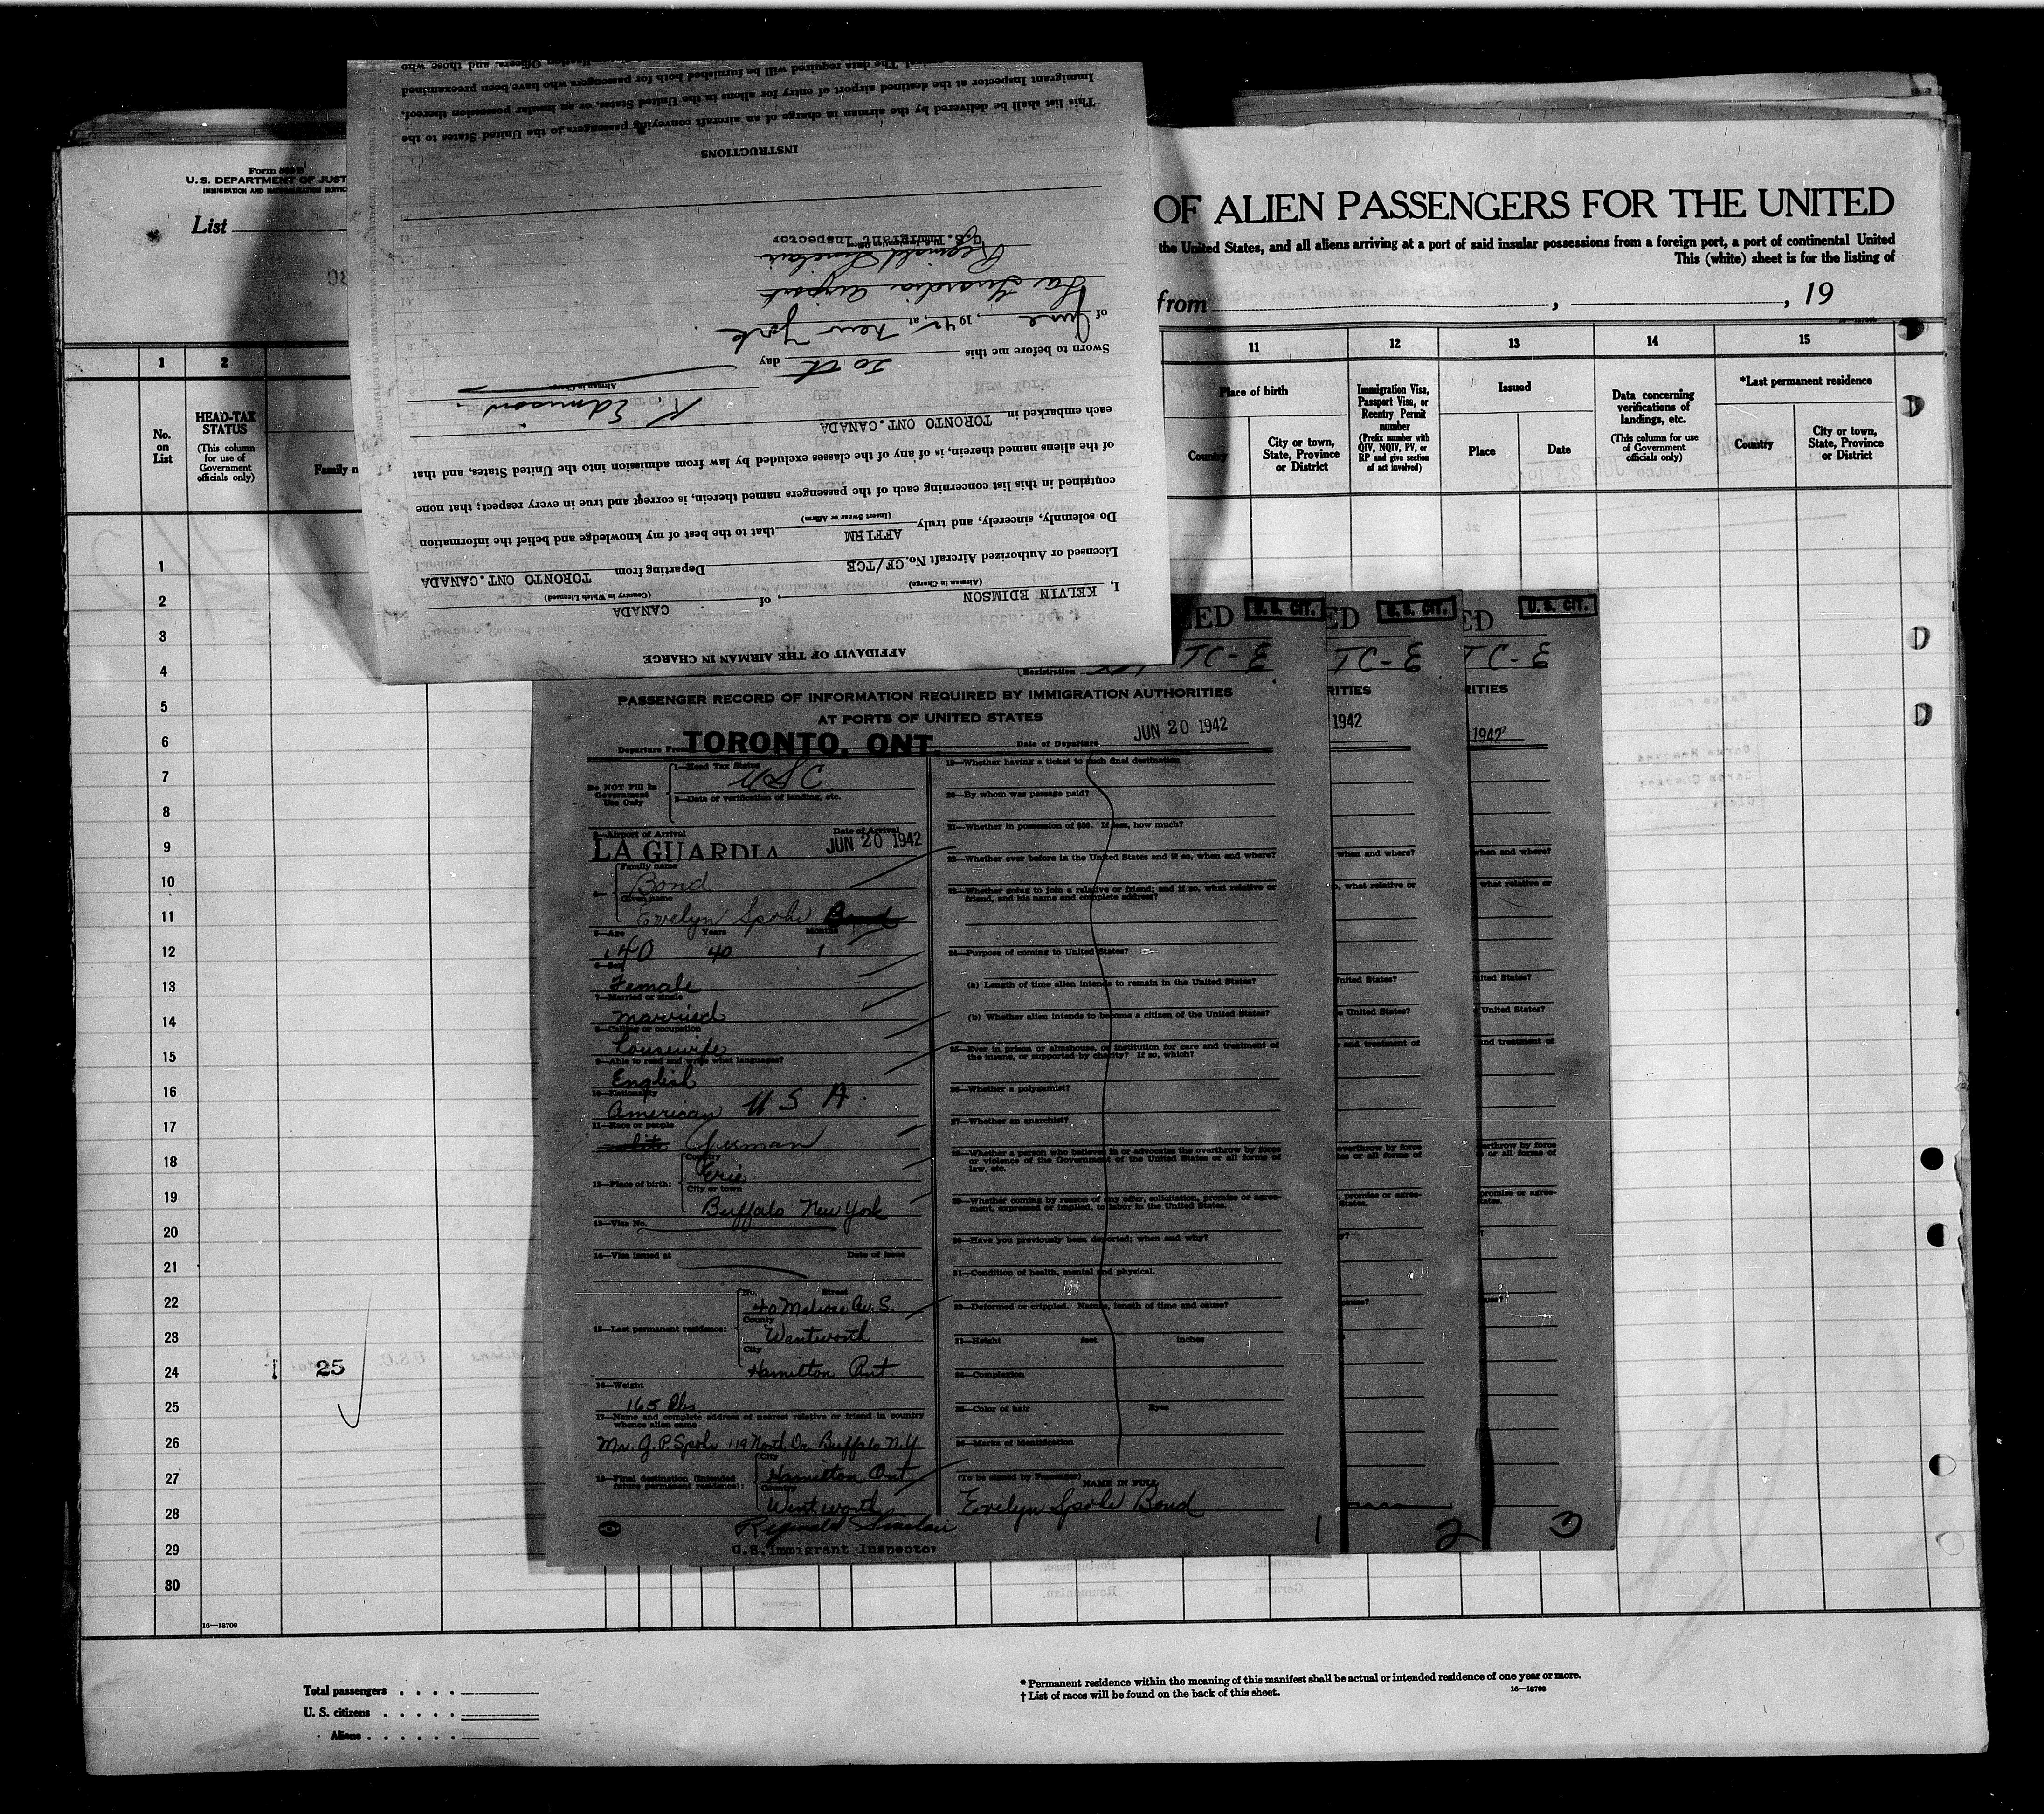 Form 500 B
U. S. DEPARTMENT OF JUST
IMMIGRATION AND NATURALIZATION SERVIC
List
OF ALIEN PASSENGERS FOR THE UNITED
the United States, and all aliens arriving at a port of said insular possessions from a foreign port, a port of continental United
This (white) sheet is for the listing of
from , , 19
1 2 11 12 13 14 15
No. on List
HEAD-TAX STATUS
(This column for use of Government officials only)
Family n
Place of birth
Country
City or town, State, Province or District
Immigration Visa, Passport Visa, or Reentry Permit number
(Prefix number with QIV, NQIV, PV, or RP and give section of act involved)
Issued
Place
Date
Data concerning verifications of landings, etc.
(This column for use of Government officials only)
*Last permanent residence
Country
City or town, State, Province or District
AFFIDAVIT OF THE AIRMAN IN CHARGE
I, KELVIN EDIMSON, of CANADA
(Airman in Charge) (Country in Which Licensed)
Licensed or Authorized Aircraft No. CF/TCE Departing from TORONTO ONT.CANADA
Do solemnly, sincerely, and truly AFFIRM that to the best of my knowledge and belief the information
(Insert Swear or Affirm)
contained in this list concerning each of the passengers named therein, is correct and true in every respect; that none
of the aliens named therein is of any of the classes excluded by law from admission into the United States, and that
each embarked in TORONTO ONT.CANADA
K. Edmison
Airman in Charge
Sworn to before me this 20th day
of June, 1942, at New York
La Guardia Airport
Reginald Sinclair
U.S. Immigrant Inspector
INSTRUCTIONS
This list shall be delivered by the airman in charge of an aircraft conveying passengers to the United States to the
Immigrant Inspector at the destined airport of entry for aliens in the United States, or an insular possession thereof,
The data required will be furnished both for passengers who have been preexamined
Officers, and those who
ED U. S. CIT.
ED U. S. CIT.
ED U. S. CIT.
(Registration TC-E
TC-E
TC-E
PASSENGER RECORD OF INFORMATION REQUIRED BY IMMIGRATION AUTHORITIES
AT PORTS OF UNITED STATES
Departure From TORONTO, ONT. Date of Departure JUN 20 1942
Do NOT Fill In Government Use Only
1—Head Tax Status
USC
2—Data or verification of landing, etc.
3—Airport of Arrival Date of Arrival
LA GUARDIA JUN 20 1942
4— Family name
Bond
Given name
Evelyn Spohr
5—Age Years Months
40 40 1
6—Sex
Female
7—Married or single
Married
8—Calling or occupation
Housewife
9—Able to read and write what languages?
English
10—Nationality
American U S A
11—Race or people
white German
12—Place of birth: Country
Erie
City or town
Buffalo New York
13—Visa No.
14—Visa issued at Date of issue
15—Last permanent residence: No. Street
40 Melrose Av. S.
County
Wentworth
City
Hamilton Ont
16—Weight
165 lbs.
17—Name and complete address of nearest relative or friend in country whence alien came
Mr. G. P. Spohr 119 North Dr Buffalo N.Y
18—Final destination (intended future permanent residence): City
Hamilton Ont
Country
Wentworth
Reginald Sinclair
U.S. Immigrant Inspector
19—Whether having a ticket to such final destination
20—By whom was passage paid?
21—Whether in possession of $50. If less, how much?
22—Whether ever before in the United States and if so, when and where?
23—Whether going to join a relative or friend; and if so, what relative or friend, and his name and complete address?
24—Purpose of coming to United States?
(a) Length of time alien intends to remain in the United States?
(b) Whether alien intends to become a citizen of the United States?
25—Ever in prison or almshouse, or institution for care and treatment of the insane, or supported by charity? If so, which?
26—Whether a polygamist?
27—Whether an anarchist?
28—Whether a person who believes in or advocates the overthrow by force or violence of the Government of the United States or all forms of law, etc.
29—Whether coming by reason of any offer, solicitation, promise or agreement, expressed or implied, to labor in the United States.
30—Have you previously been deported; when and why?
31—Condition of health, mental and physical.
32—Deformed or crippled. Nature, length of time and cause?
33—Height feet inches
34—Complexion
35—Color of hair Eyes
36—Marks of identification
(To be signed by Passenger) NAME IN FULL
Evelyn Spohr Bond
1
2
3
RITIES
1942
RITIES
1942
1
2
3
4
5
6
7
8
9
10
11
12
13
14
15
16
17
18
19
20
21
22
23
24
25
26
27
28
29
30
25
16—18709
Total passengers
U. S. citizens
Aliens
* Permanent residence within the meaning of this manifest shall be actual or intended residence of one year or more.
† List of races will be found on the back of this sheet.
16—18709